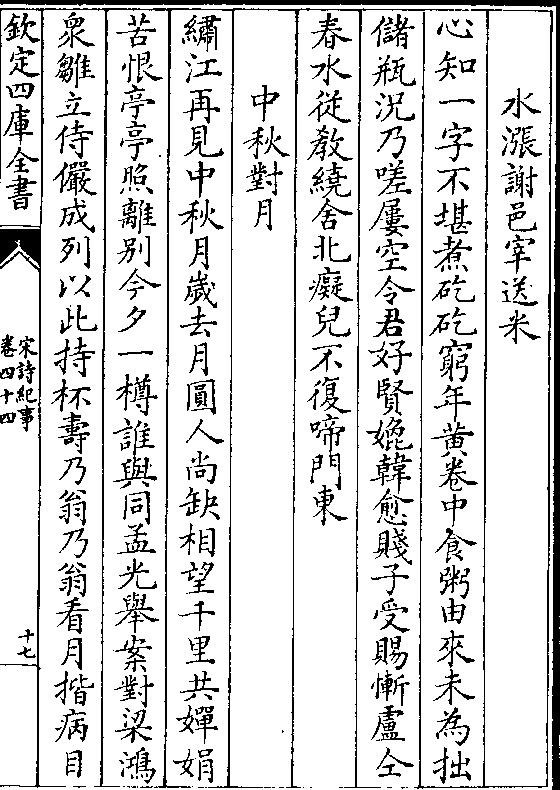 水漲謝邑宰送米
心知一字不堪煮矻矻窮年黄卷中食粥由來未為拙
儲瓶況乃嗟屢空令君好賢媲韓愈賤子受賜慚盧仝
春水從教繞舍北癡兒不復啼門東
中秋對月
繡江再見中秋月歲去月圓人尚缺相望千里共嬋娟
苦恨亭亭照離别今夕一樽誰與同孟光舉案對梁鴻
衆雛立侍儼成列以此持杯壽乃翁乃翁看月揩病目
欽定四庫全書
宋詩紀事
卷四十四
十七